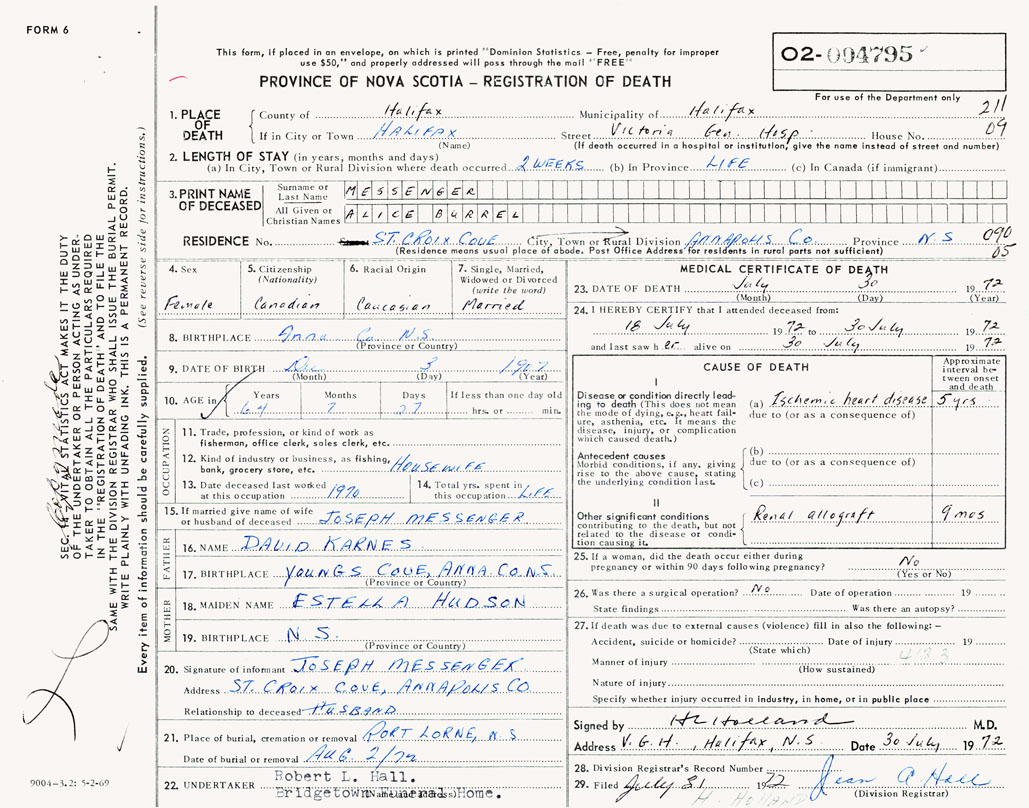 FORM 6
This form, if placed in an envelope, on which is printed "Dominion Statistics – Free, penalty for improper
use $50," and properly addressed will pass through the mail "FREE"
O2-004795
PROVINCE OF NOVA SCOTIA – REGISTRATION OF DEATH
For use of the Department only
1. PLACE OF DEATH
County of Halifax Municipality of Halifax 211
If in City or Town HALIFAX Street Victoria Gen. Hosp. House No. 09
(Name) (If death occurred in a hospital or institution, give the name instead of street and number)
2. LENGTH OF STAY (in years, months and days)
(a) In City, Town or Rural Division where death occurred 2 WEEKS (b) In Province LIFE (c) In Canada (if immigrant)
3. PRINT NAME OF DECEASED
Surname or Last Name MESSENGER
All Given or Christian Names ALICE BURREL
RESIDENCE No. ST. CROIX COVE City, Town or Rural Division ANNAPOLIS CO. Province N S 090
(Residence means usual place of abode. Post Office Address for residents in rural parts not sufficient) 05
4. Sex
Female
5. Citizenship
(Nationality)
Canadian
6. Racial Origin
Caucasian
7. Single, Married,
Widowed or Divorced
(write the word)
Married
8. BIRTHPLACE Anna Co. N.S.
(Province or Country)
9. DATE OF BIRTH Dec 3 1907
(Month) (Day) (Year)
10. AGE in
Years Months Days If less than one day old
64 7 27 hrs. or min.
OCCUPATION
11. Trade, profession, or kind of work as
fisherman, office clerk, sales clerk, etc.
12. Kind of industry or business, as fishing,
bank, grocery store, etc. HOUSEWIFE
13. Date deceased last worked
at this occupation 1970
14. Total yrs. spent in
this occupation LIFE
15. If married give name of wife
or husband of deceased JOSEPH MESSENGER
FATHER
16. NAME DAVID KARNES
17. BIRTHPLACE YOUNGS COVE, ANNA CO. N.S.
(Province or Country)
MOTHER
18. MAIDEN NAME ESTELLA HUDSON
19. BIRTHPLACE N S.
(Province or Country)
20. Signature of informant JOSEPH MESSENGER
Address ST. CROIX COVE, ANNAPOLIS CO.
Relationship to deceased HUSBAND
21. Place of burial, cremation or removal PORT LORNE, N.S
Date of burial or removal AUG. 2/72
22. UNDERTAKER Robert L. Hall.
Bridgetown Funeral Home.
(Name and address)
MEDICAL CERTIFICATE OF DEATH
23. DATE OF DEATH July 30 1972
(Month) (Day) (Year)
24. I HEREBY CERTIFY that I attended deceased from:
18 July 1972 to 30 July 1972
and last saw her alive on 30 July 1972
CAUSE OF DEATH
Approximate
interval be-
tween onset
and death
I
Disease or condition directly lead-
ing to death (This does not mean
the mode of dying, e.g., heart fail-
ure, asthenia, etc. It means the
disease, injury, or complication
which caused death.)
(a) Ischemic heart disease 5 yrs
due to (or as a consequence of)
Antecedent causes
Morbid conditions, if any, giving
rise to the above cause, stating
the underlying condition last.
(b)
due to (or as a consequence of)
(c)
II
Other significant conditions
contributing to the death, but not
related to the disease or condi-
tion causing it.
Renal allograft 9 mos
25. If a woman, did the death occur either during
pregnancy or within 90 days following pregnancy? No
(Yes or No)
26. Was there a surgical operation? No Date of operation 19
State findings Was there an autopsy?
27. If death was due to external causes (violence) fill in also the following: –
Accident, suicide or homicide? Date of injury 19
(State which)
Manner of injury
(How sustained)
Nature of injury
Specify whether injury occurred in industry, in home, or in public place
Signed by H Holland M.D.
Address V.G.H., Halifax, N.S Date 30 July 1972
28. Division Registrar's Record Number
29. Filed July 31 1972 Jean A Hall
(Division Registrar)
H. HOLLAND
SEC. VITAL STATISTICS ACT MAKES IT THE DUTY
OF THE UNDERTAKER OR PERSON ACTING AS UNDER-
TAKER TO OBTAIN ALL THE PARTICULARS REQUIRED
IN THE "REGISTRATION OF DEATH" AND TO FILE THE
SAME WITH THE DIVISION REGISTRAR WHO SHALL ISSUE THE BURIAL PERMIT.
WRITE PLAINLY WITH UNFADING INK. THIS IS A PERMANENT RECORD.
Every item of information should be carefully supplied. (See reverse side for instructions.)
9004–3.2: 5-2-69